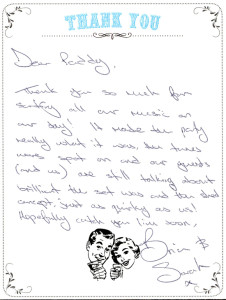 THANK YOU
Dear Paddy,
Thank you so much for
sorting all our music on
our day! It made the party
really what it was, the tunes
were spot on and our guests
(and us) are still talking about
brilliant the set was and the
concept, just as quirky as us!
Hopefully catch you live soon,
x